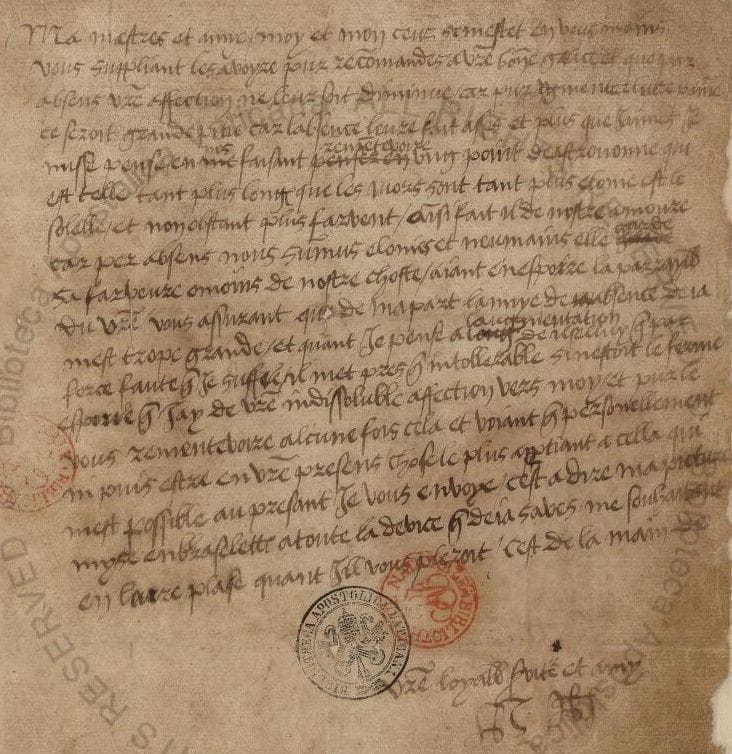 Ma mestres et amye, moy et mon ceur semestet en vous mains
vous suppliant les avoyre pur recomandes a vre bone grace et que pur
absens vre affection ne leur soit diminue, car pur agmenter leur paine
ce seroit grande pitie car labsence leure fait asses et plus que jamés je
neuse pensé en nous faisant rementevoire ung point dastronomie qui
est telle tant plus longs que les mors sont tant plus elonie est le
solelle, et non obstant plus farvent, ainsi fait il de nostre amoure
car per absens nous sumus elonies et neumains elle garde
sa farveure omoins de nostre choste, aiant en espoire la parrayll
du vre vous assurant que de ma part lannuye de absence deia
mest trope grande, et quant je pense a laugmentation de iceluy que par
force faute que je suffre, il mest presque intollerable si nestoit le ferme
espoire que jay de vre indissoluble affection vers moy et pur le
vous rementevoire alcune fois cela et voiant que personellement
ne puis estre en vre presens chose le plus aptiant a cella qui
mest possible au presant je vous envoye, cest a dire ma picture
myse en braselette a toute la device que deia saves me souhaitant
en leure plase quant ill vous pleroit, cest de la main de
vre loyall serviteur et amy
H R
BIBLIOTHECA APOSTOLICA VATICANA
Biblioteca Apostolica
RESERVED